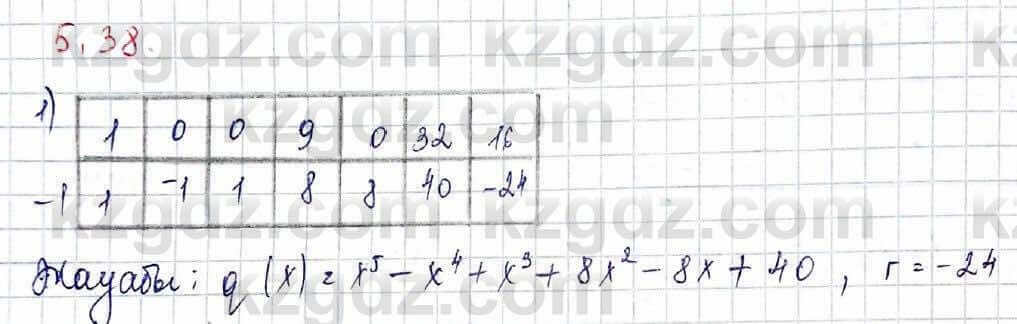 5.38.
1)
1 0 0 9 0 32 16
-1 1 -1 1 8 8 40 -24
Жауабы: q(x) = x⁵ - x⁴ + x³ + 8x² - 8x + 40, r = -24
kzgdz.com